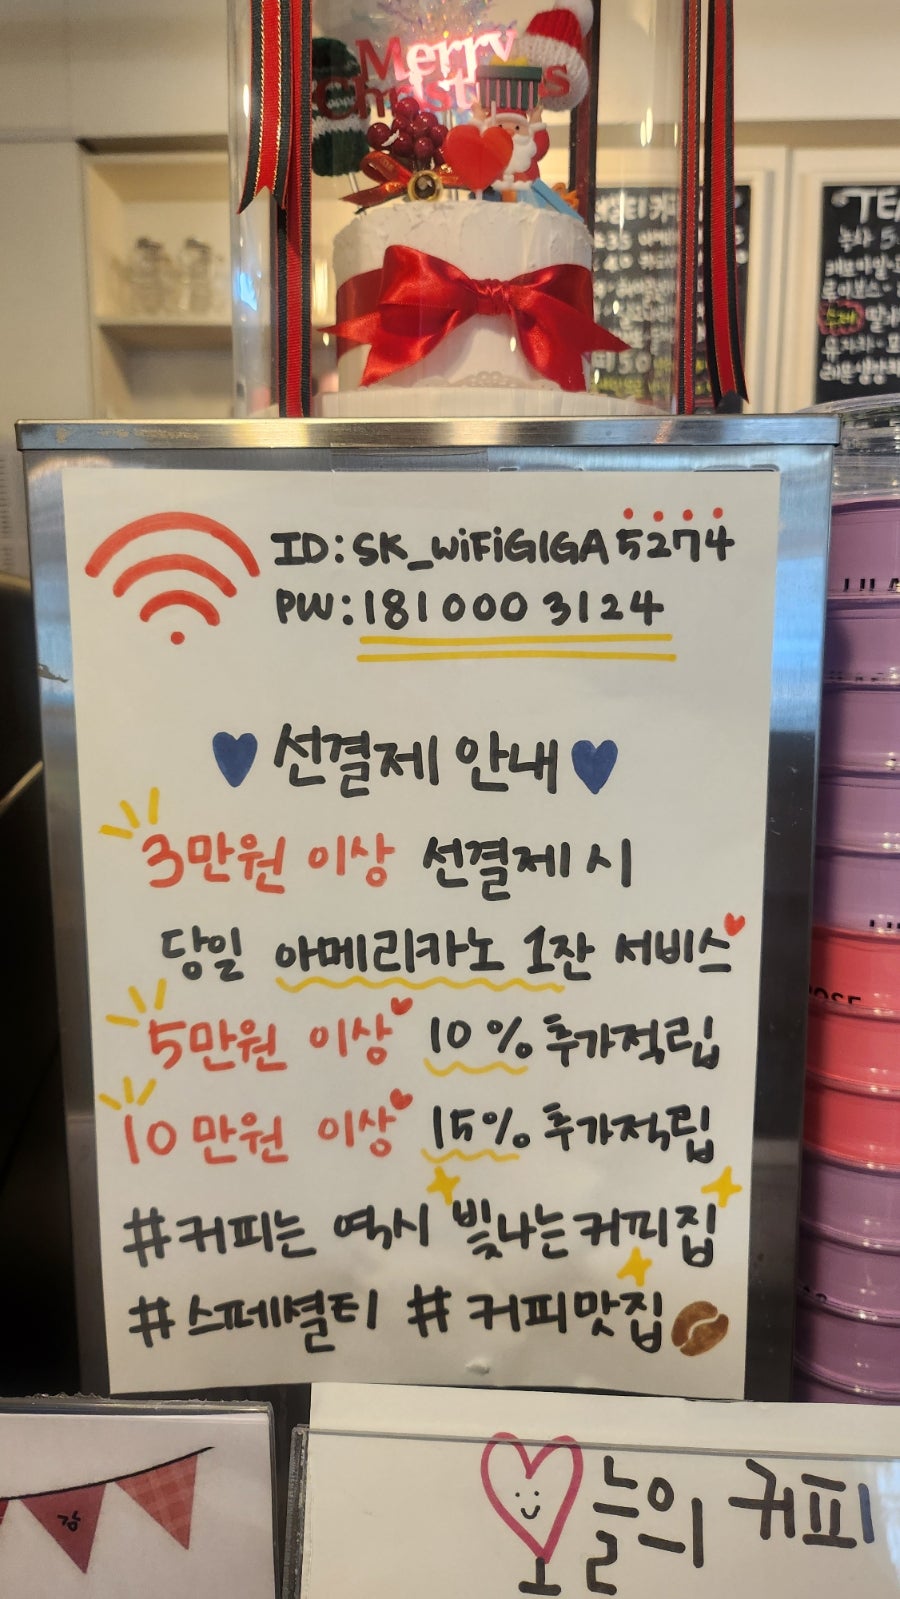 Merry
Christmas
TEA
ID:SK_WiFiGIGA5274
PW:1810003124
선결제 안내
3만원 이상 선결제 시
당일 아메리카노 1잔 서비스
5만원 이상 10% 추가적립
10만원 이상 15% 추가적립
#커피는 역시 빛나는커피집
#스페셜티 #커피맛집
오늘의 커피